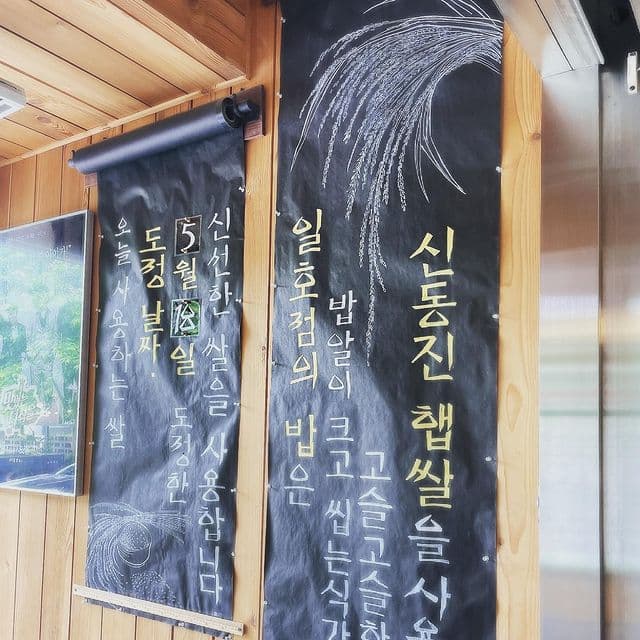 오늘 사용하는 쌀
도정 날짜.
5월 18일
도정한
신선한 쌀을 사용합니다.
일호점의 밥은
밥알이 크고
고슬고슬
신동진 햅쌀을